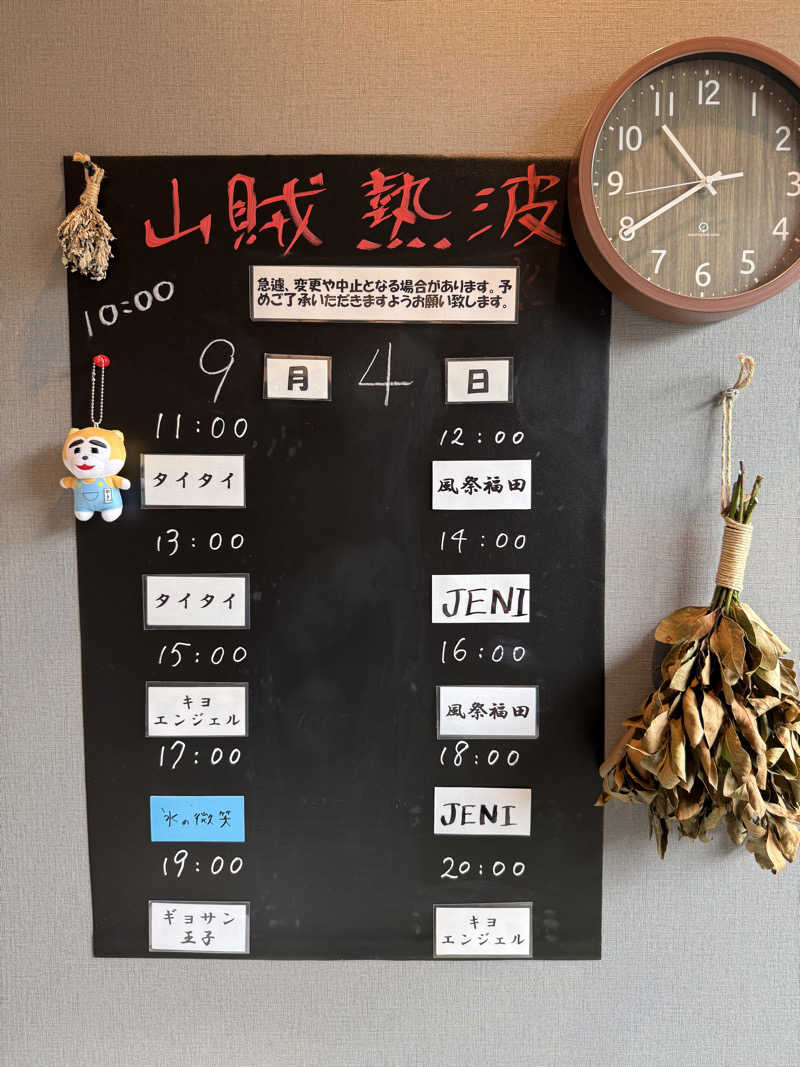 山賊熱波
急遽、変更や中止となる場合があります。予
めご了承いただきますようお願い致します。
10:00
9月4日
11:00
タイタイ
12:00
風祭福田
13:00
タイタイ
14:00
JENI
15:00
キヨ
エンジェル
16:00
風祭福田
17:00
氷の微笑
18:00
JENI
19:00
ギョサン
王子
20:00
キヨ
エンジェル
12
1
2
3
4
5
6
7
8
9
10
11